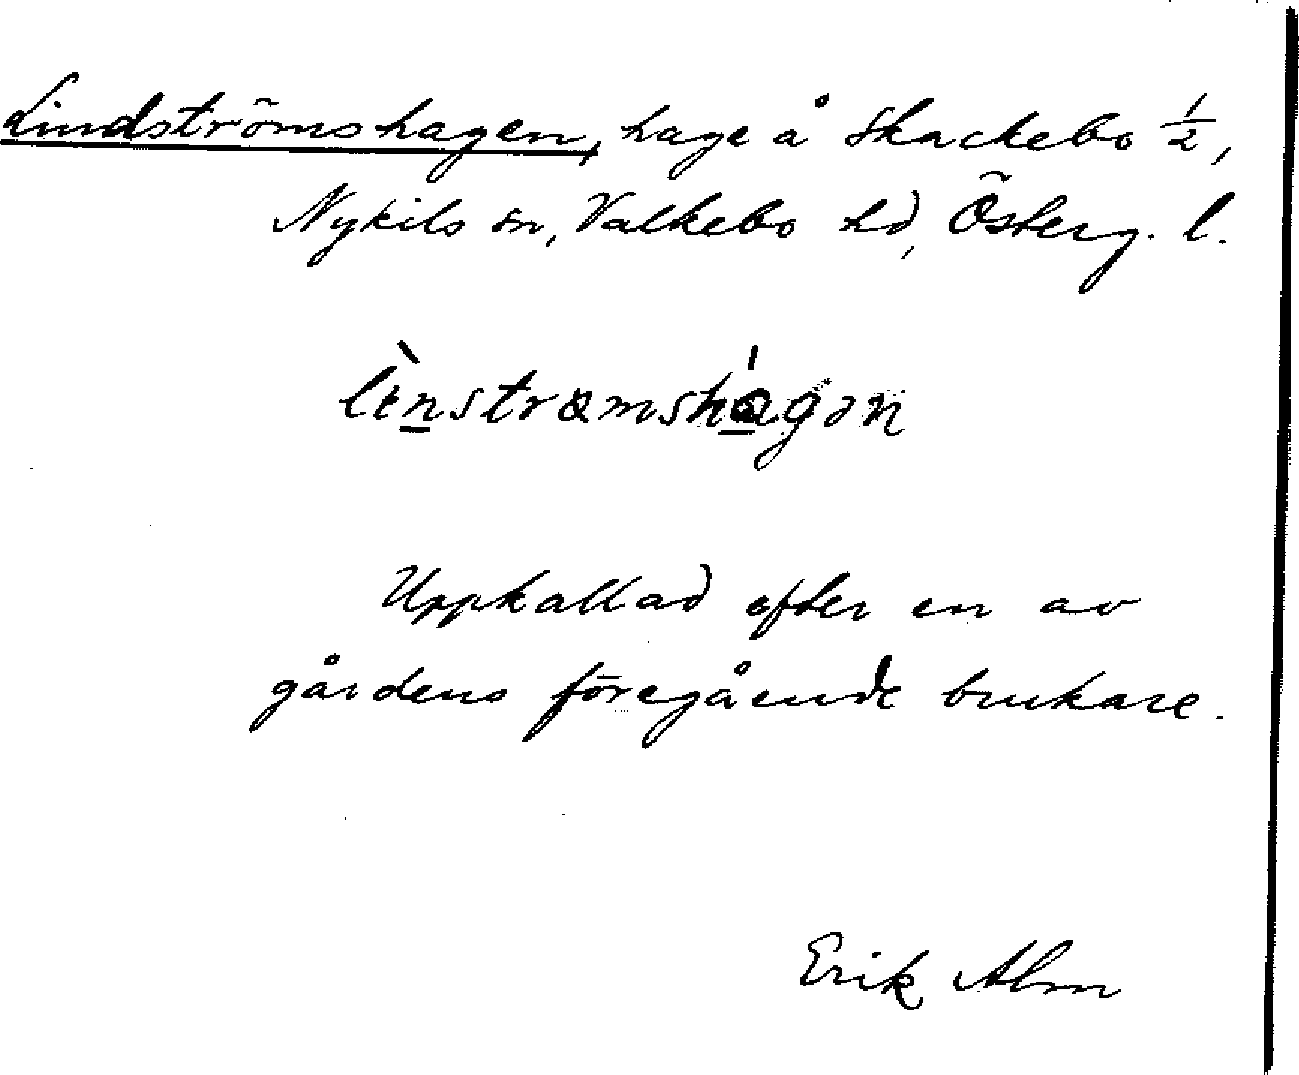 Lindströmshagen, hage å Skackebo 1/2,
Nykils sn, Valkebo hd, Österg. l.
Uppkallad efter en av
gårdens föregående brukare.
Erik Alm